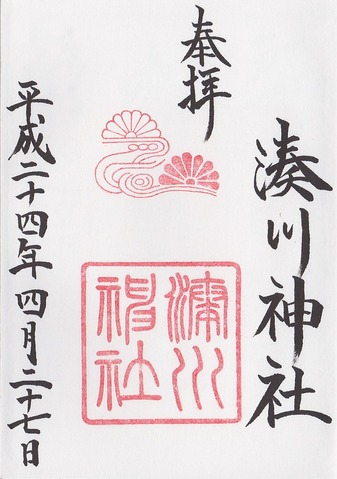 奉拝
湊川神社
湊川神社
平成二十四年四月二十七日